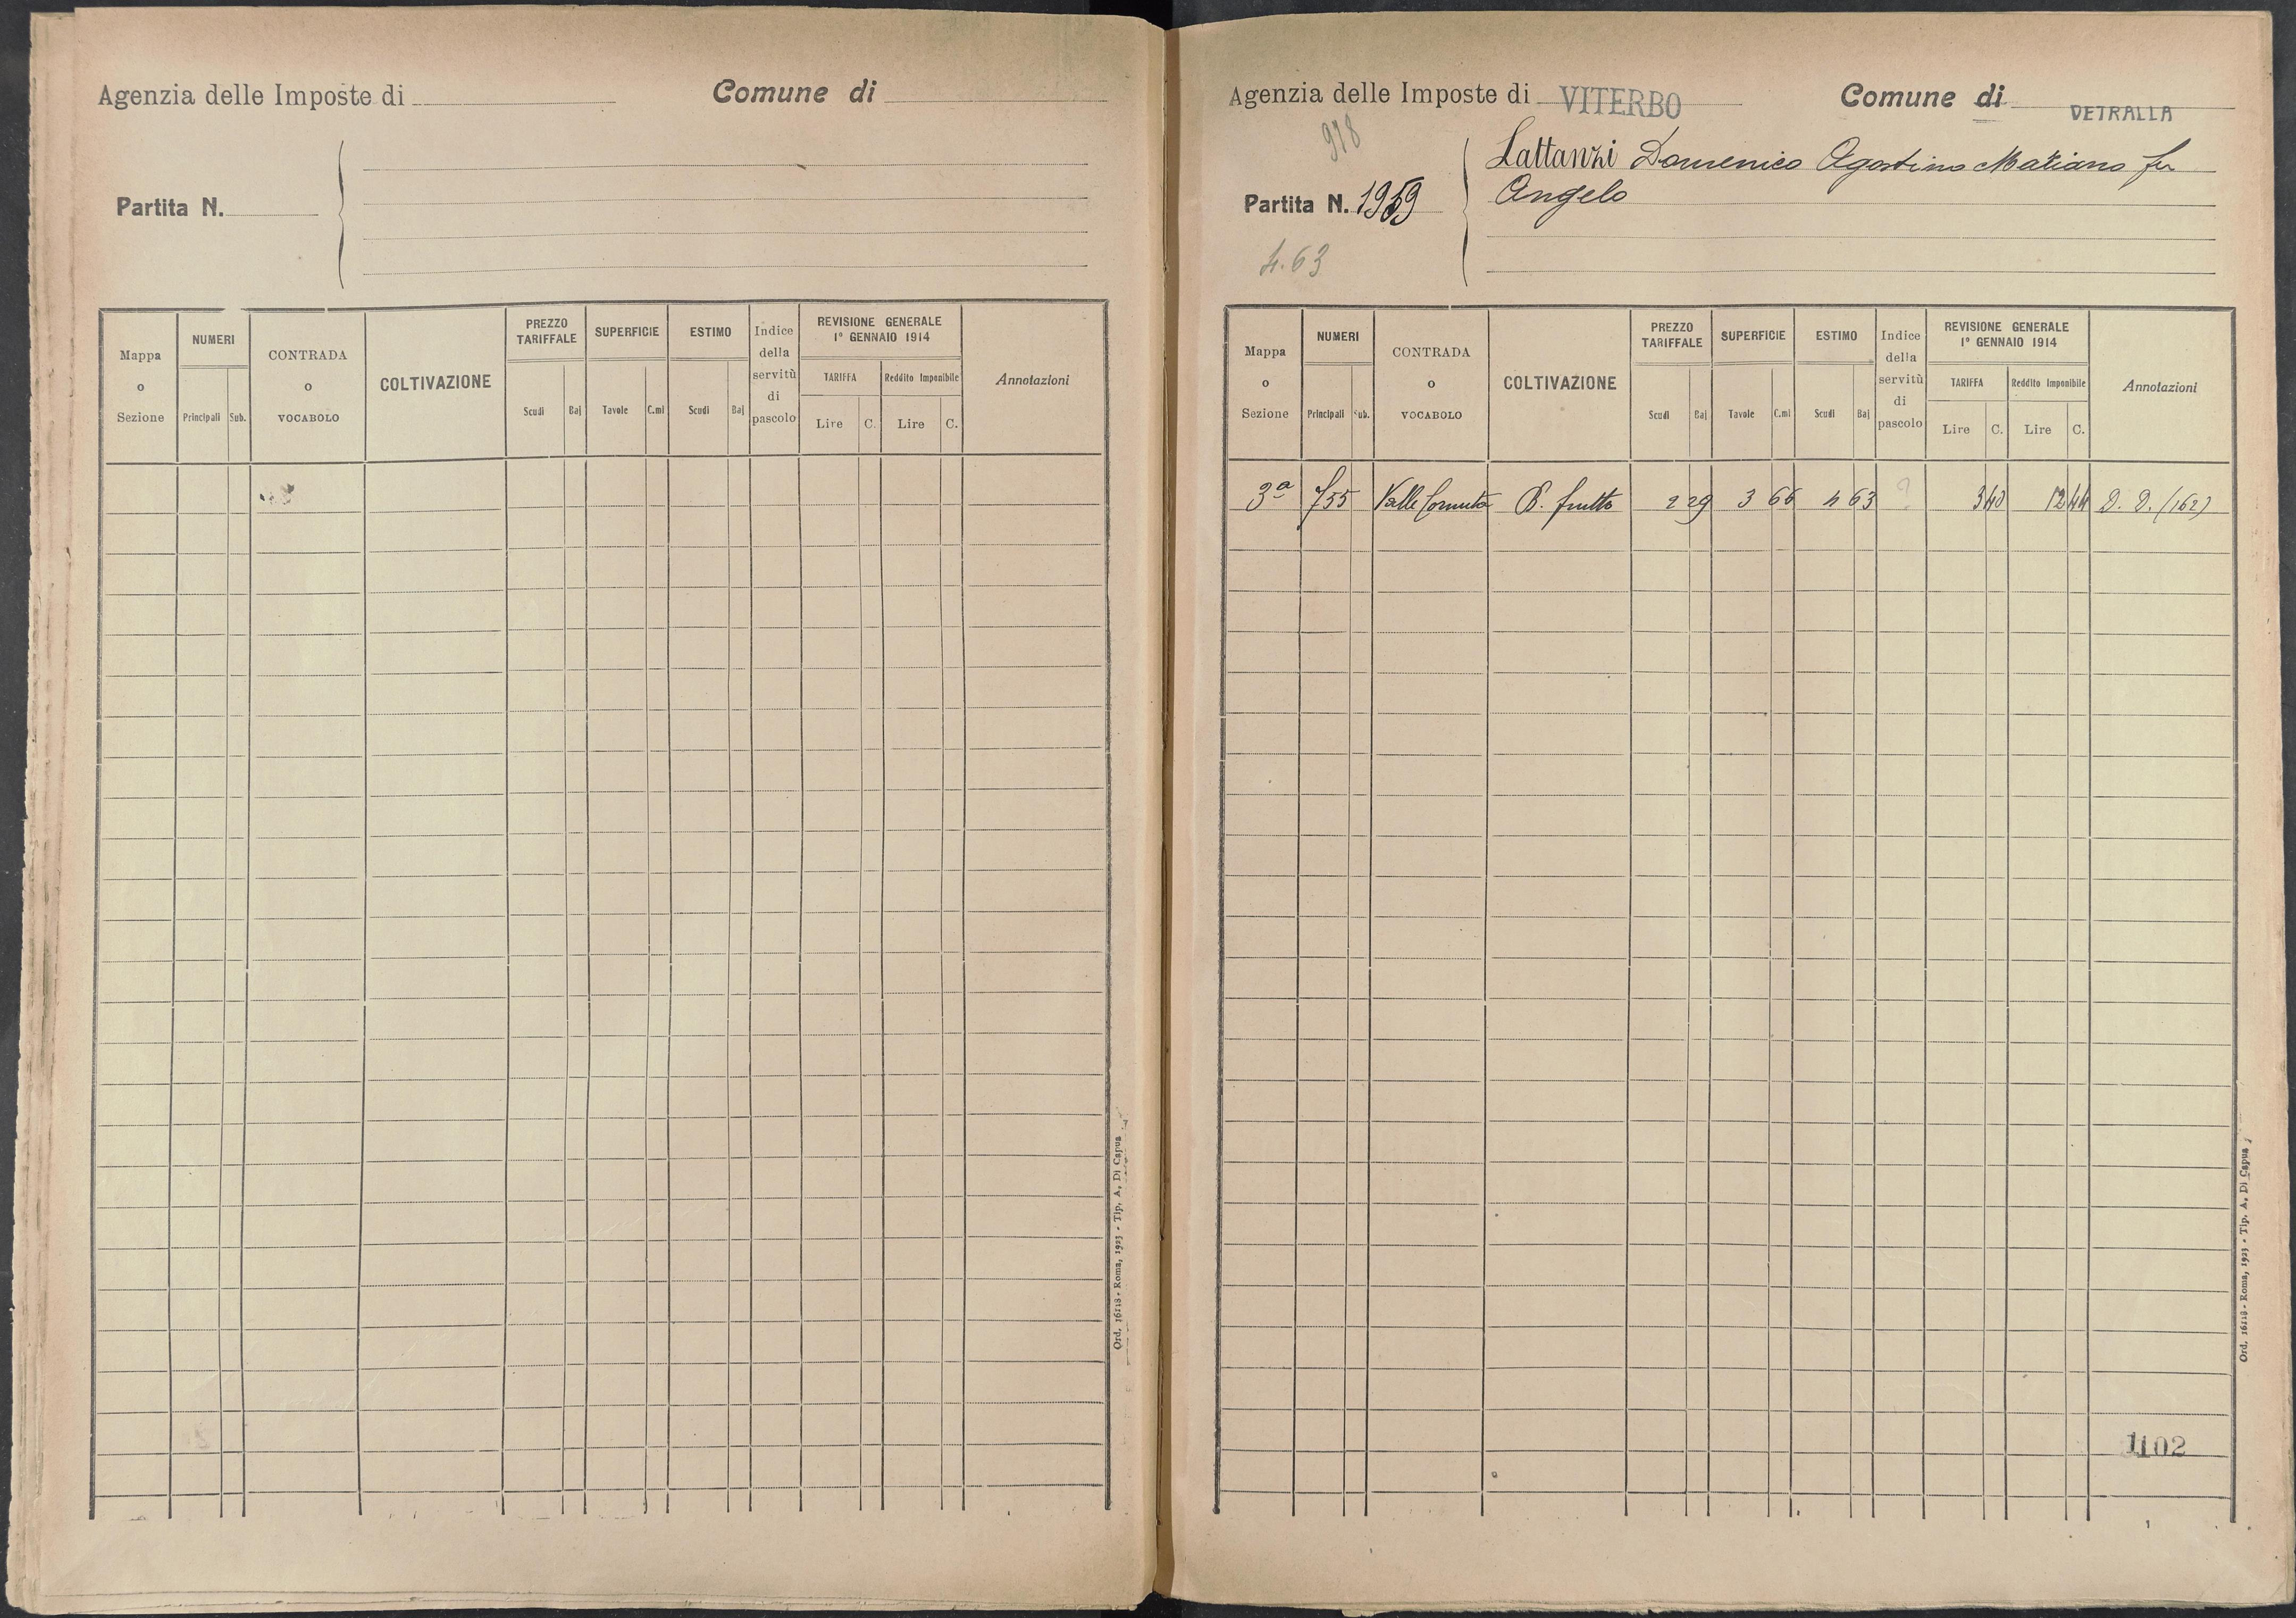 Agenzia delle Imposte di
Comune di
Partita N.
Mappa o Sezione
NUMERI
Principali Sub.
CONTRADA o VOCABOLO
COLTIVAZIONE
PREZZO TARIFFALE
Scudi Baj
SUPERFICIE
Tavole C.mi
ESTIMO
Scudi Baj
Indice della servitù di pascolo
REVISIONE GENERALE
1° GENNAIO 1914
TARIFFA Reddito Imponibile
Lire C. Lire C.
Annotazioni
Ord. 16118 - Roma, 1923 - Tip. A. Di Capua
Agenzia delle Imposte di VITERBO
Comune di VETRALLA
978
Partita N. 1959
4.63
Lattanzi Domenico Agostino Mariano fu
Angelo
Mappa o Sezione
NUMERI
Principali Sub.
CONTRADA o VOCABOLO
COLTIVAZIONE
PREZZO TARIFFALE
Scudi Baj
SUPERFICIE
Tavole C.mi
ESTIMO
Scudi Baj
Indice della servitù di pascolo
REVISIONE GENERALE
1° GENNAIO 1914
TARIFFA Reddito Imponibile
Lire C. Lire C.
Annotazioni
3ª 755 Valle Cornuta P. frutto 2 29 3 66 4 63 ? 3 40 12 44 D. D. (162)
1102
Ord. 16118 - Roma, 1923 - Tip. A. Di Capua